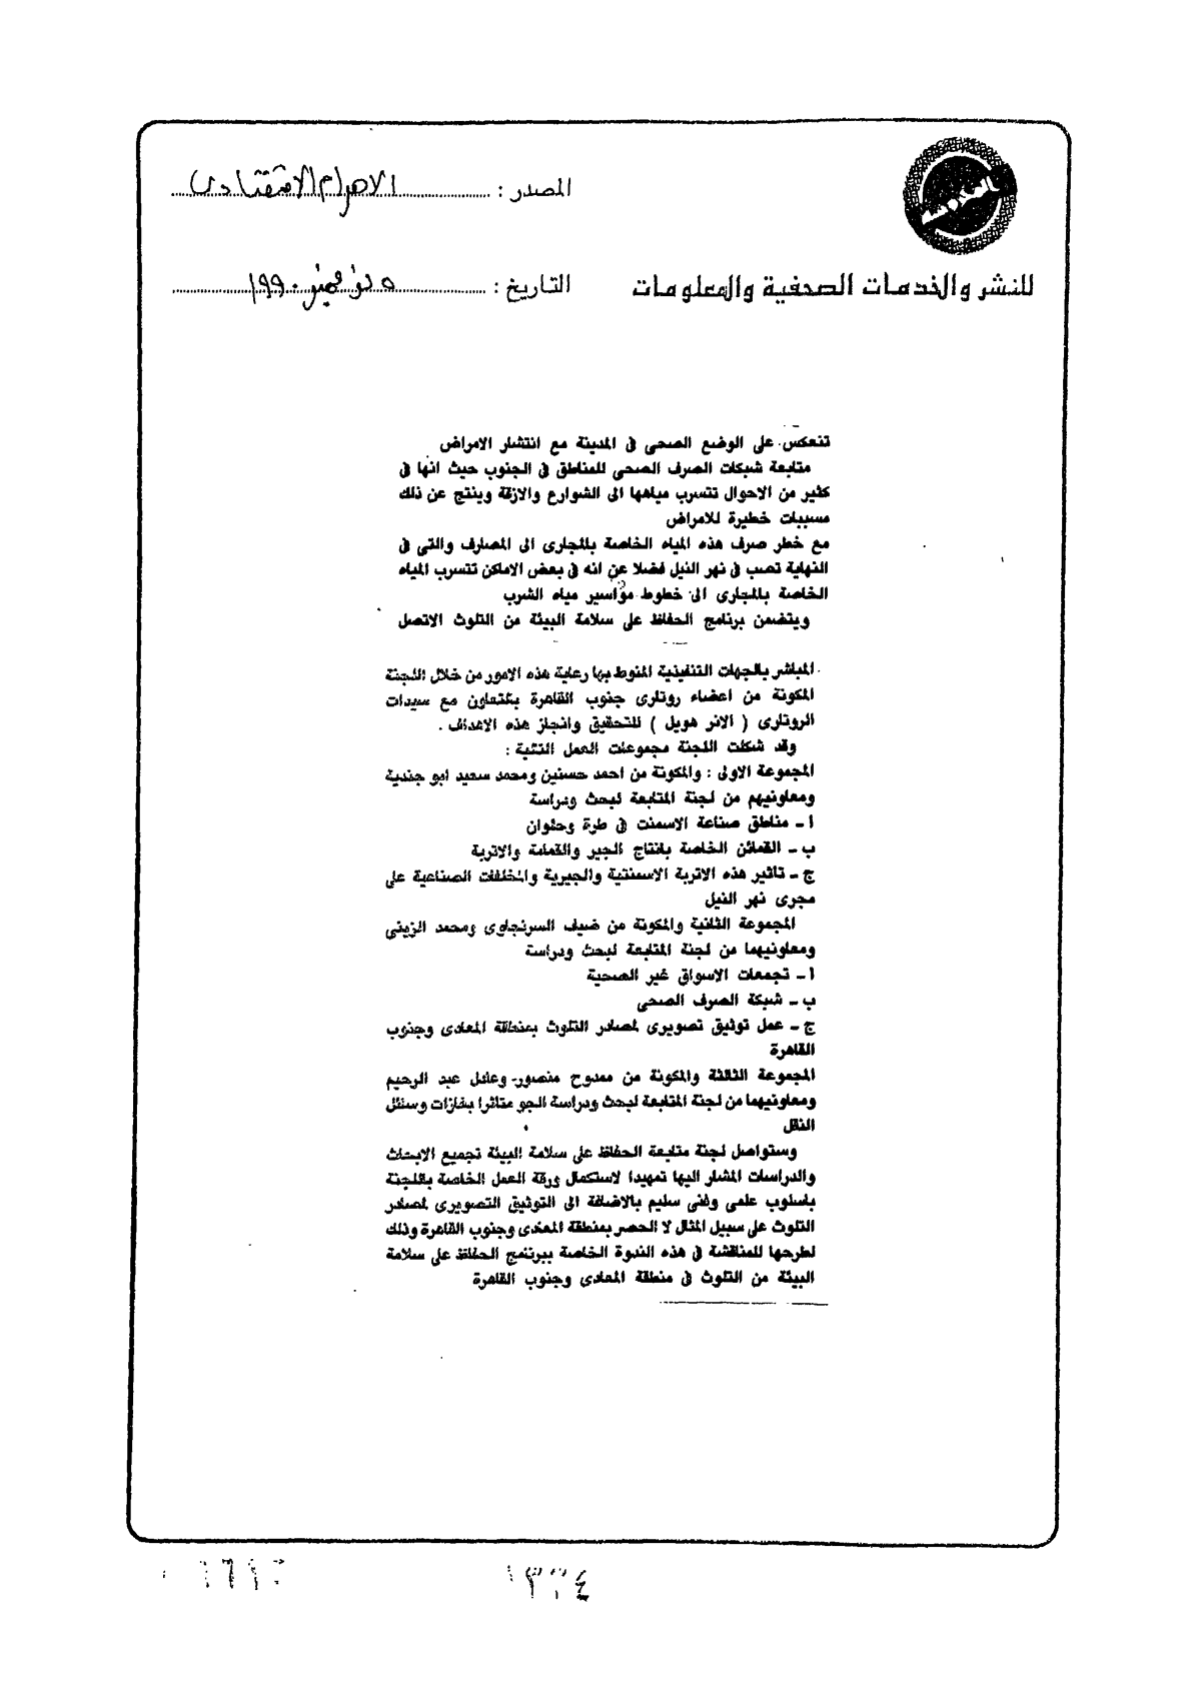 المصدر : الاهرام الاقتصادى
للنشر والخدمات الصحفية والمعلومات
التاريخ : ٥ نوفمبر ١٩٩٠
تنعكس على الوضع الصحى فى المدينة مع انتشار الامراض
متابعة شبكات الصرف الصحى للمناطق فى الجنوب حيث انها فى
كثير من الاحوال تتسرب مياهها الى الشوارع والازقة وينتج عن ذلك
مسببات خطيرة للامراض
مع خطر صرف هذه المياه الخاصة بالمجارى الى المصارف والتى فى
النهاية تصب فى نهر النيل فضلا عن انه فى بعض الاماكن تتسرب المياه
الخاصة بالمجارى الى خطوط مواسير مياه الشرب
ويتضمن برنامج الحفاظ على سلامة البيئة من التلوث الاتصل
المباشر بالجهات التنفيذية المنوط بها رعاية هذه الامور من خلال اللجنة
المكونة من اعضاء روتارى جنوب القاهرة بالتعاون مع سيدات
الروتارى ( الانر هويل ) للتحقيق وانجاز هذه الاهداف .
وقد شكلت اللجنة مجموعات العمل التالية :
المجموعة الاولى : والمكونة من احمد حسنين ومحمد سعيد ابو جندية
ومعاونيهم من لجنة المتابعة لبحث ودراسة
ا ـ مناطق صناعة الاسمنت فى طرة وحلوان
ب ـ القمائن الخاصة بانتاج الجير والقمامة والاتربة
ج ـ تاثير هذه الاتربة الاسمنتية والجيرية والمخلفات الصناعية على
مجرى نهر النيل
المجموعة الثانية والمكونة من ضيف السرنجاوى ومحمد الزينى
ومعاونيهما من لجنة المتابعة لبحث ودراسة
ا ـ تجمعات الاسواق غير الصحية
ب ـ شبكة الصرف الصحى
ج ـ عمل توثيق تصويرى لمصادر التلوث بمنطقة المعادى وجنوب
القاهرة
المجموعة الثالثة والمكونة من ممدوح منصور وعادل عبد الرحيم
ومعاونيهما من لجنة المتابعة لبحث ودراسة الجو متاثرا بغازات وسائل
النقل
وستواصل لجنة متابعة الحفاظ على سلامة البيئة تجميع الابحاث
والدراسات المشار اليها تمهيدا لاستكمال ورقة العمل الخاصة باللجنة
باسلوب علمى وفنى سليم بالاضافة الى التوثيق التصويرى لمصادر
التلوث على سبيل المثال لا الحصر بمنطقة المعادى وجنوب القاهرة وذلك
لطرحها للمناقشة فى هذه الندوة الخاصة ببرنامج الحفاظ على سلامة
البيئة من التلوث فى منطقة المعادى وجنوب القاهرة